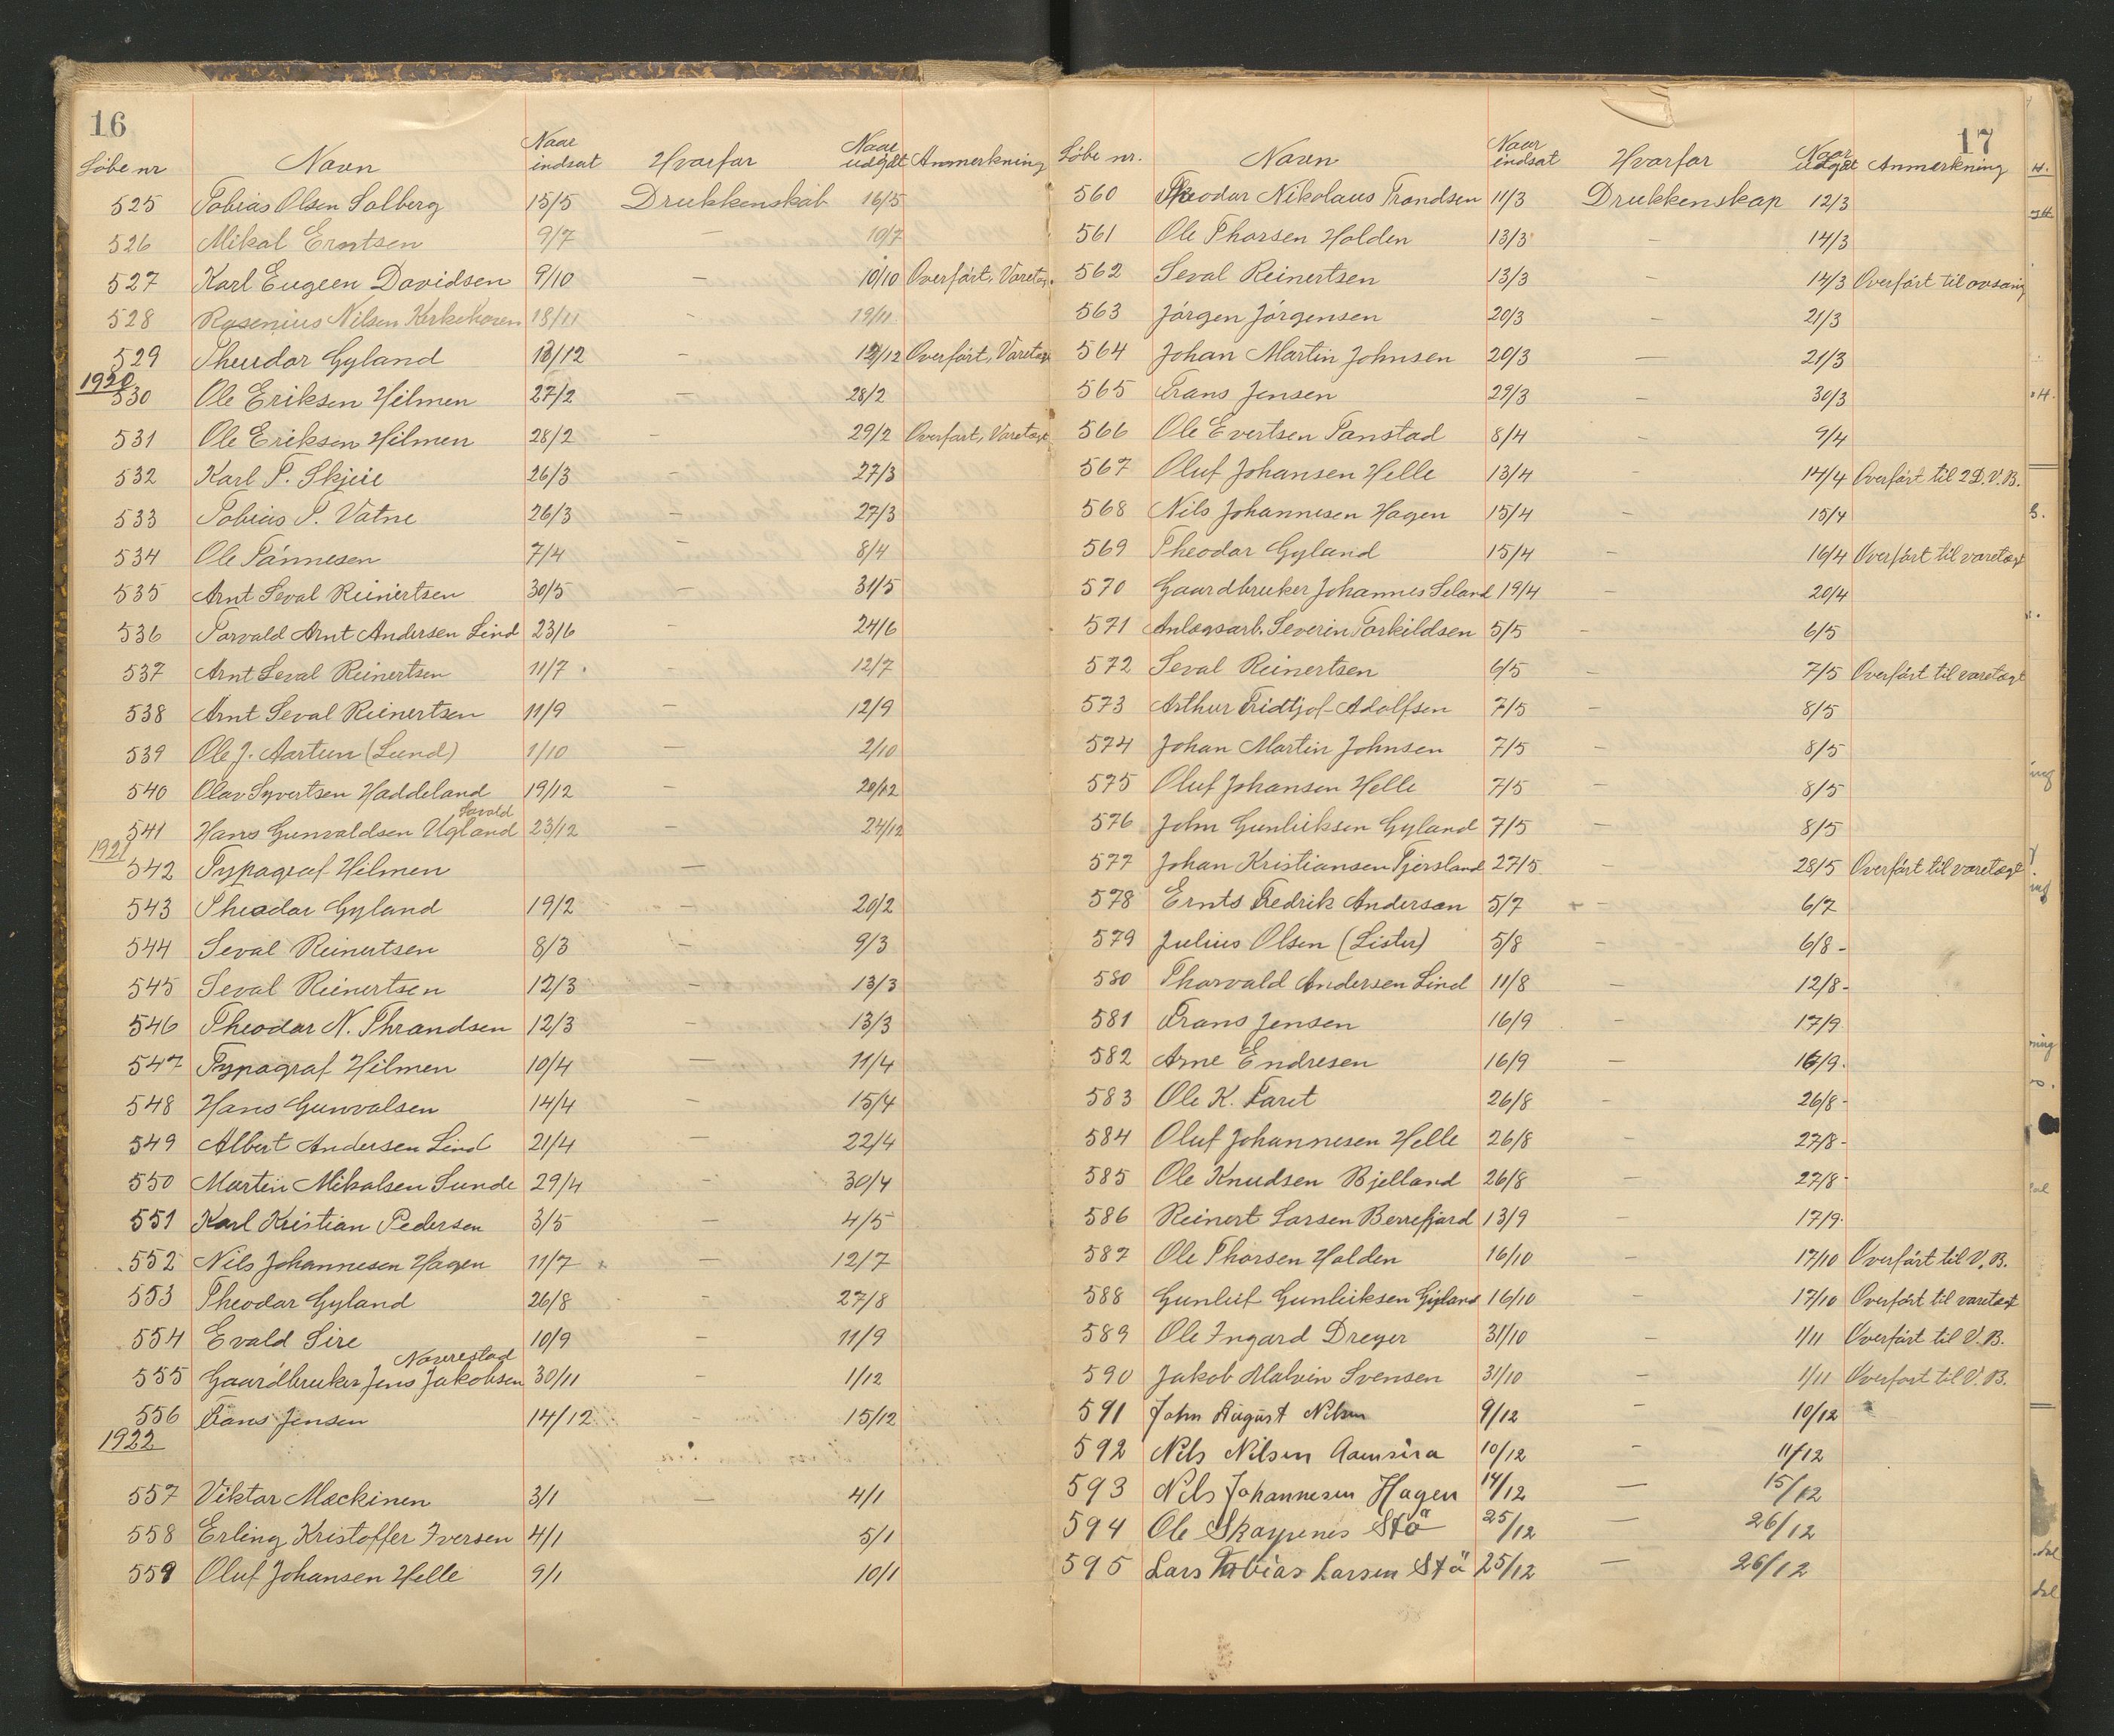 16
Löbe nr Navn Naar indsat Hvorfor Naar udgåt Anmerkning
525 Tobias Olsen Solberg 15/5 Drukkenskab 16/5
526 Mikal Erntsen 9/7 — 10/7
527 Karl Eugeen Davidsen 9/10 — 10/10 Overført, Varetæg.
528 Rosenius Nilsen 18/11 - 19/11
529 Theodor Gyland 18/12 - 19/12 Overført, Varetægt
1920
530 Ole Eriksen Hilmen 27/2 — 28/2
531 Ole Eriksen Hilmen 28/2 - 29/2 Overført, Varetægt
532 Karl T. Skjeie 26/3 - 27/3
533 Tobias T. Vatne 26/3 - 27/3
534 Ole Tønnesen 7/4 - 8/4
535 Arnt Seval Reinertsen 30/5 - 31/5
536 Torvald Arnt Andersen Lind 23/6 - 24/6
537 Arnt Seval Reinertsen 11/7 - 12/7
538 Arnt Seval Reinertsen 11/9 - 12/9
539 Ole J. Aartun (Lund) 1/10 — 2/10
540 Olav Syvertsen Haddeland 19/12 - 20/12
541 Hans Gunvaldsen Ugland 23/12 - 24/12
1921
542 Typograf Hilmen —
543 Theodor Gyland 19/2 - 20/2
544 Seval Reinertsen 8/3 - 9/3
545 Seval Reinertsen 12/3 - 13/3
546 Theodor N. Thrandsen 12/3 - 13/3
547 Typograf Hilmen 10/4 — 11/4
548 Hans Gunvalsen 14/4 - 15/4
549 Albert Andersen Lind 21/4 - 22/4
550 Martin Mikalsen Sunde 29/4 - 30/4
551 Karl Kristian Pedersen 3/5 - 4/5
552 Nils Johannesen Hagen 11/7 — 12/7
553 Theodor Gyland 26/8 - 27/8
554 Evald Sire 10/9 - 11/9
Naverestad
555 Gaardbruker Jens Jakobsen 30/11 - 1/12
556 Frans Jensen 14/12 - 15/12
1922
557 Viktor Mackinen 3/1 — 4/1
558 Erling Kristoffer Iversen 4/1 5/1
559 Oluf Johansen Helle 9/1 10/1
17
Löbe nr. Navn Naar indsat Hvorfor Naar udgåt Anmerkning
560 Theodor Nikolaus Trondsen 11/3 Drukkenskap 12/3
561 Ole Thorsen Holden 13/3 - 14/3
562 Seval Reinertsen 13/3 - 14/3 Overført til avsoning
563 Jørgen Jørgensen 20/3 - 21/3
564 Johan Martin Johnsen 20/3 — 21/3
565 Frans Jensen 29/3 - 30/3
566 Ole Evertsen Tanstad 8/4 - 9/4
567 Oluf Johansen Helle 13/4 - 14/4 Overført til 2 D.V.B.
568 Nils Johannesen Hagen 15/4 - 15/4
569 Theodor Gyland 15/4 - 16/4 Overført til varetægt
570 Gaardbruker Johannes Seland 19/4 - 20/4
571 Anlægsarb. Severin Torkildsen 5/5 - 6/5
572 Seval Reinertsen 6/5 - 7/5 Overført til varetægt
573 Arthur Fridtjof Adolfsen 7/5 - 8/5
574 Johan Martin Johnsen 7/5 - 8/5
575 Oluf Johansen Helle 7/5 - 8/5
576 John Gunleiksen Gyland 7/5 - 8/5
577 Johan Kristiansen Tjersland 27/5 - 28/5 Overført til varetægt
578 Ernts Fredrik Andersen 5/7 - 6/7
579 Julius Olsen (Lister) 5/8 - 6/8 -
580 Thorvald Andersen Lind 11/8 - 12/8 -
581 Frans Jensen 16/9 - 17/9
582 Arne Endresen 16/9 - 16/9.
583 Ole K. Faret 26/8 - 26/8 -
584 Oluf Johannesen Helle 26/8 - 27/8 -
585 Ole Knudsen Bjelland 26/8 - 27/8 -
586 Reinert Larsen Berrefjord 13/9 - 17/9.
587 Ole Thorsen Holden 16/10 - 17/10 Overført til V.B.
588 Gunleif Gunleiksen Gyland 16/10 - 17/10 Overført til varetægt
589 Ole Ingard Dreyer 31/10 - 1/11 Overført til V.B.
590 Jakob Malvin Svensen 31/10 - 1/11 Overført til V.B.
591 John August Nilsen 9/12 - 10/12
592 Nils Nilsen Aamsira 10/12 - 11/12
593 Nils Johannesen Hagen 14/12 — 15/12
594 Ole Skaypenes Stö 25/12 — 26/12
595 Lars Tobias Larsen Stö 25/12 — 26/12